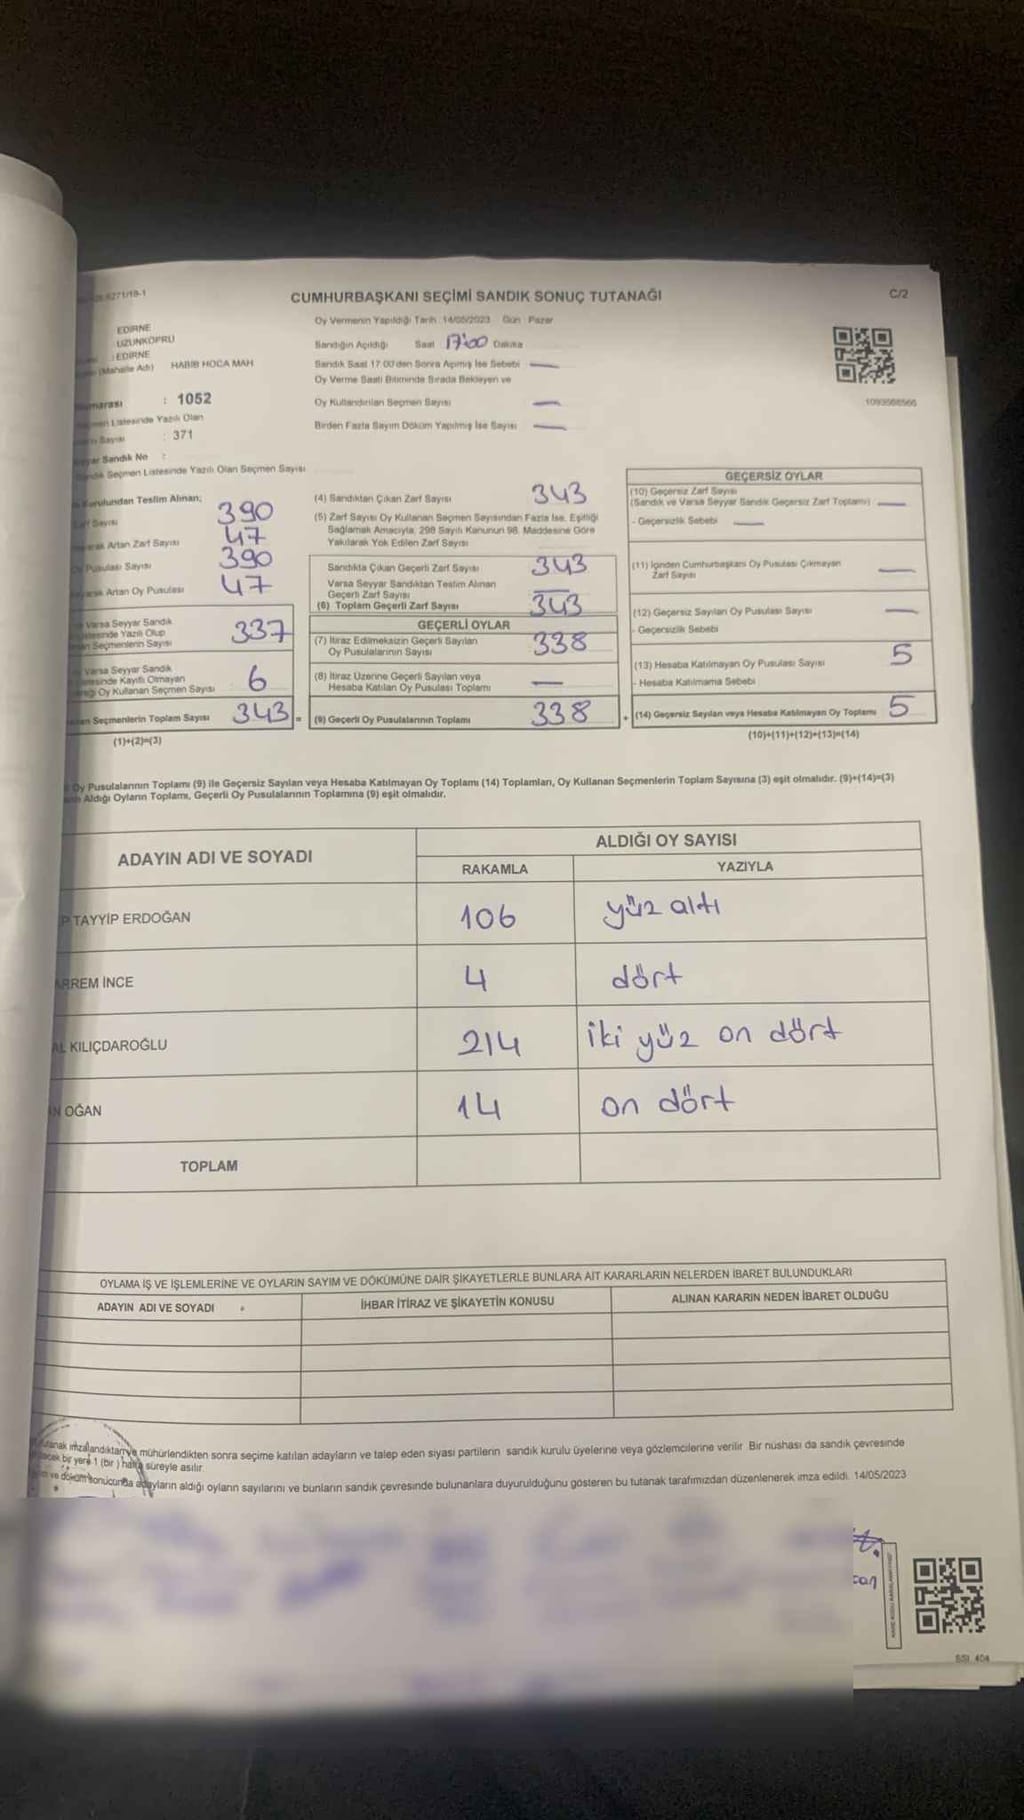 6271/19-1
CUMHURBAŞKANI SEÇİMİ SANDIK SONUÇ TUTANAĞI
C/2
EDİRNE
UZUNKÖPRÜ
EDİRNE
(Mahalle Adı) HABİB HOCA MAH
: 1052
Listesinde Yazılı Olan
Sayısı : 371
Sandık No :
Seçmen Listesinde Yazılı Olan Seçmen Sayısı
Oy Vermenin Yapıldığı Tarih : 14/05/2023 Gün : Pazar
Sandığın Açıldığı Saat 17:00 Dakika
Sandık Saat 17:00'den Sonra Açılmış İse Sebebi —
Oy Verme Saati Bitiminde Sırada Bekleyen ve
Oy Kullandırılan Seçmen Sayısı —
Birden Fazla Sayım Döküm Yapılmış İse Sayısı —
Kurulundan Teslim Alınan;
Sayısı 390
Artan Zarf Sayısı 47
Pusulası Sayısı 390
Artan Oy Pusulası 47
Varsa Seyyar Sandık
Listesinde Yazılı Olup
Seçmenlerin Sayısı 337
Varsa Seyyar Sandık
Listesinde Kayıtlı Olmayan
Oy Kullanan Seçmen Sayısı 6
Seçmenlerin Toplam Sayısı 343 =
(1)+(2)=(3)
(4) Sandıktan Çıkan Zarf Sayısı 343
(5) Zarf Sayısı Oy Kullanan Seçmen Sayısından Fazla İse, Eşitliği
Sağlamak Amacıyla, 298 Sayılı Kanunun 98. Maddesine Göre
Yakılarak Yok Edilen Zarf Sayısı —
Sandıkta Çıkan Geçerli Zarf Sayısı 343
Varsa Seyyar Sandıktan Teslim Alınan
Geçerli Zarf Sayısı —
(6) Toplam Geçerli Zarf Sayısı 343
GEÇERLİ OYLAR
(7) İtiraz Edilmeksizin Geçerli Sayılan
Oy Pusulalarının Sayısı 338
(8) İtiraz Üzerine Geçerli Sayılan veya
Hesaba Katılan Oy Pusulası Toplamı —
(9) Geçerli Oy Pusulalarının Toplamı 338 +
GEÇERSİZ OYLAR
(10) Geçersiz Zarf Sayısı
(Sandık ve Varsa Seyyar Sandık Geçersiz Zarf Toplamı) —
- Geçersizlik Sebebi —
(11) İçinden Cumhurbaşkanı Oy Pusulası Çıkmayan
Zarf Sayısı —
(12) Geçersiz Sayılan Oy Pusulası Sayısı —
- Geçersizlik Sebebi
(13) Hesaba Katılmayan Oy Pusulası Sayısı 5
- Hesaba Katılmama Sebebi
(14) Geçersiz Sayılan veya Hesaba Katılmayan Oy Toplamı 5
(10)+(11)+(12)+(13)=(14)
Oy Pusulalarının Toplamı (9) ile Geçersiz Sayılan veya Hesaba Katılmayan Oy Toplamı (14) Toplamları, Oy Kullanan Seçmenlerin Toplam Sayısına (3) eşit olmalıdır. (9)+(14)=(3)
Aldığı Oyların Toplamı, Geçerli Oy Pusulalarının Toplamına (9) eşit olmalıdır.
ADAYIN ADI VE SOYADI
ALDIĞI OY SAYISI
RAKAMLA YAZIYLA
P TAYYİP ERDOĞAN 106 yüz altı
RREM İNCE 4 dört
AL KILIÇDAROĞLU 214 iki yüz on dört
N OĞAN 14 on dört
TOPLAM
OYLAMA İŞ VE İŞLEMLERİNE VE OYLARIN SAYIM VE DÖKÜMÜNE DAİR ŞİKAYETLERLE BUNLARA AİT KARARLARIN NELERDEN İBARET BULUNDUKLARI
ADAYIN ADI VE SOYADI İHBAR İTİRAZ VE ŞİKAYETİN KONUSU ALINAN KARARIN NEDEN İBARET OLDUĞU
tutanak imzalandıktan ve mühürlendikten sonra seçime katılan adayların ve talep eden siyasi partilerin sandık kurulu üyelerine veya gözlemcilerine verilir. Bir nüshası da sandık çevresinde
bir yere 1 (bir) hafta süreyle asılır.
ve döküm sonucunda adayların aldığı oyların sayılarını ve bunların sandık çevresinde bulunanlara duyurulduğunu gösteren bu tutanak tarafımızdan düzenlenerek imza edildi. 14/05/2023
can
SSI. 404